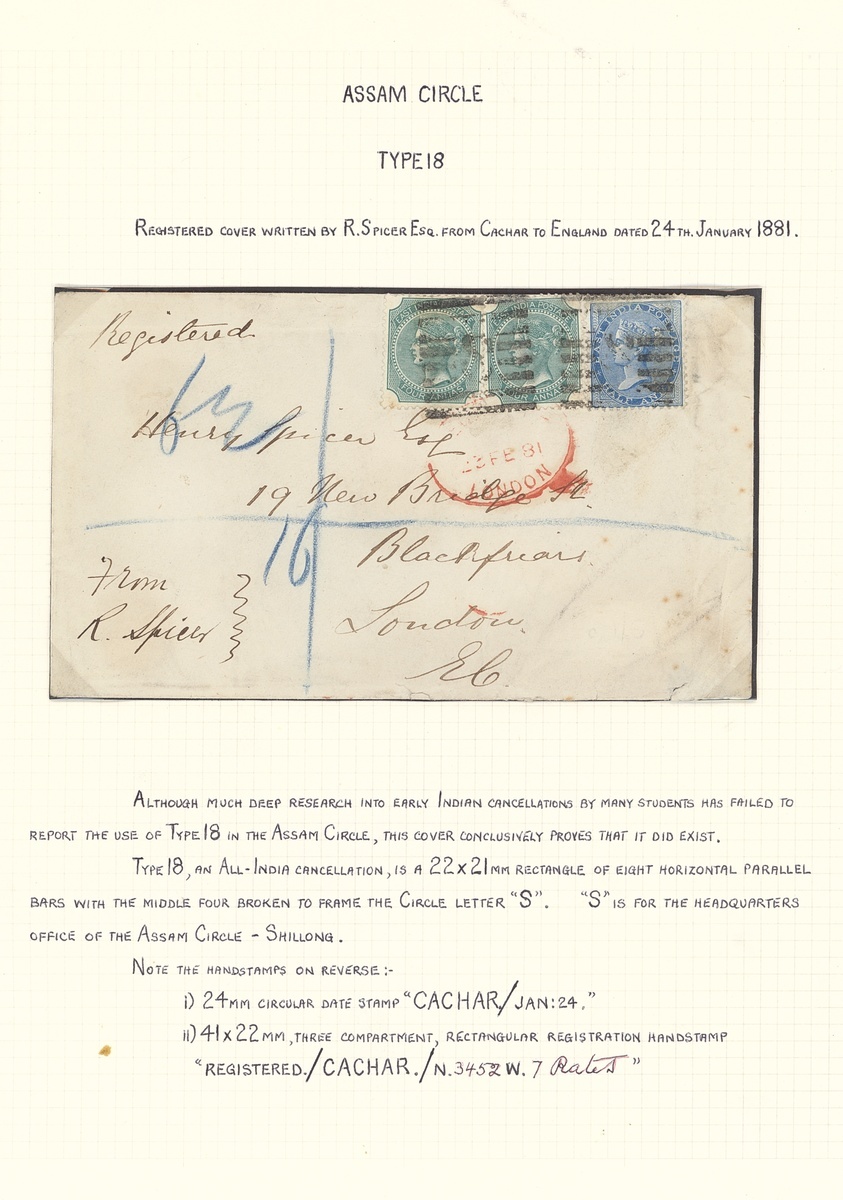 ASSAM CIRCLE
TYPE 18
REGISTERED COVER WRITTEN BY R. SPICER ESQ. FROM CACHAR TO ENGLAND DATED 24TH. JANUARY 1881.
Registered
EAST INDIA POSTAGE
FOUR ANNAS
INDIA POSTAGE
FOUR ANNAS
EAST INDIA POSTAGE
HALF ANNA
Henry Spicer Esq
FE 81
LONDON
19 New Bridge St.
16
Blackfriars
From
R. Spicer
London
EC.
ALTHOUGH MUCH DEEP RESEARCH INTO EARLY INDIAN CANCELLATIONS BY MANY STUDENTS HAS FAILED TO
REPORT THE USE OF TYPE 18 IN THE ASSAM CIRCLE, THIS COVER CONCLUSIVELY PROVES THAT IT DID EXIST.
TYPE 18, AN ALL-INDIA CANCELLATION, IS A 22x21MM RECTANGLE OF EIGHT HORIZONTAL PARALLEL
BARS WITH THE MIDDLE FOUR BROKEN TO FRAME THE CIRCLE LETTER "S". "S" IS FOR THE HEADQUARTERS
OFFICE OF THE ASSAM CIRCLE - SHILLONG.
NOTE THE HANDSTAMPS ON REVERSE:-
i) 24MM CIRCULAR DATE STAMP "CACHAR/JAN:24."
ii) 41x22MM, THREE COMPARTMENT, RECTANGULAR REGISTRATION HANDSTAMP
"REGISTERED./CACHAR./N.3452 W. 7 Rates"